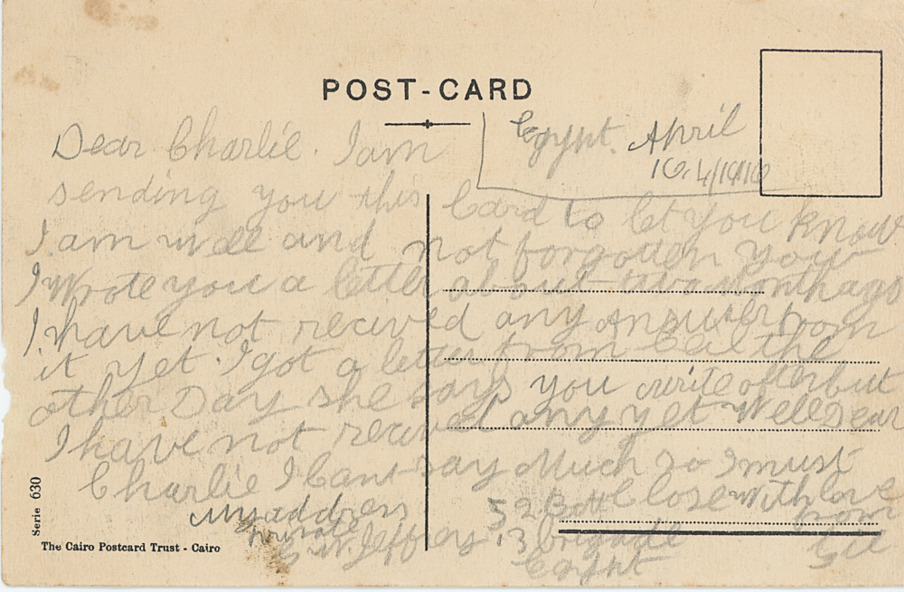 POST-CARD
Egypt. April
16.4/1916
Dear Charlie. I am
sending you this Card to let you know
I am well and not forgotten you
I Wrote you a letter about two months ago
I have not recived any answer from
it yet. I got a letter from the
other Day she says you write often but
I have not recived any yet Well Dear
Charlie I Cant say Much so I must
Close with love
from
My address
Private
G W Jeffrey 52 Batt
13 brigade
Egypt
Serie 630
The Cairo Postcard Trust - Cairo